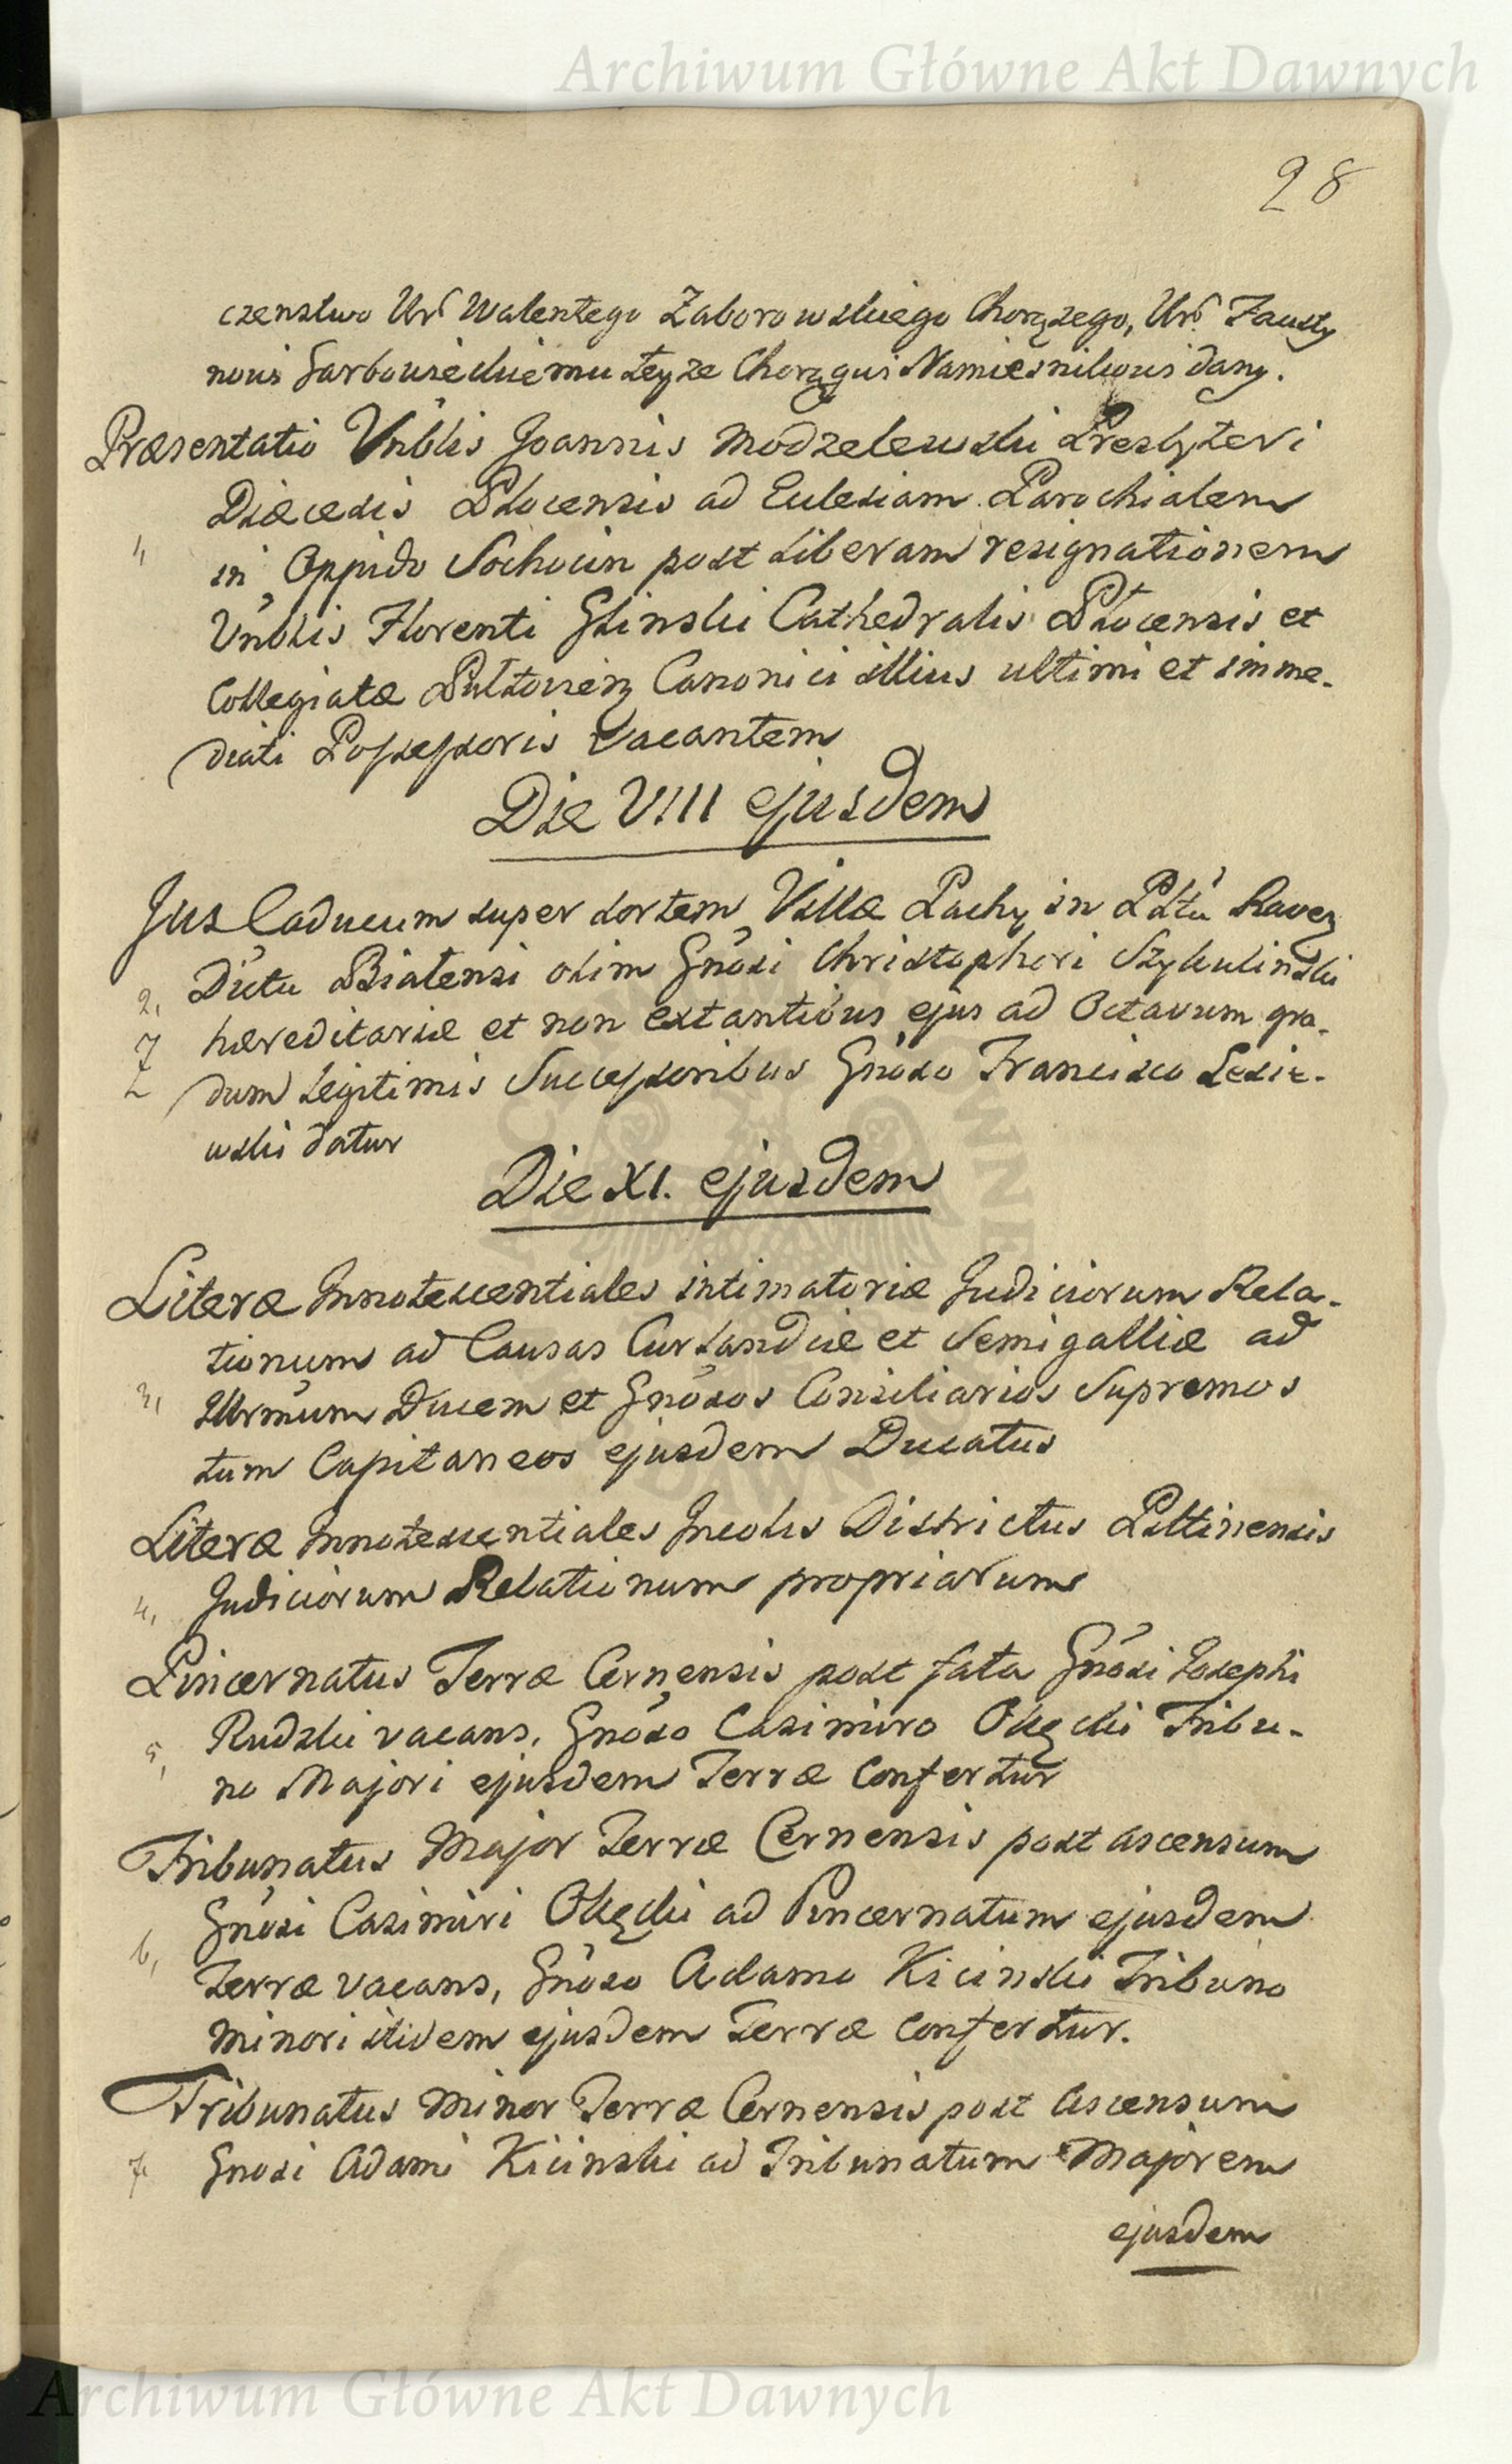 Archiwum Główne Akt Dawnych
28
czenstwo Ur. Walentego Zaborowskiego Chorązego, Ur. Fausty
nowi Garbowieckiemu teyze Chorągwi Namiesnikowi dany.
Præsentatio Vnblis Joannis Modzelewski Presbyteri
Diæcesis Plocensis ad Eclesiam Parochialem
1,
in Oppido Sochocin post liberam resignationem
Vnblis Florenti Glinski Cathedralis Plocensis et
Collegiatæ Pultovien Canonici illius ultimi et imme-
diati Possessoris vacantem
Die VIII ejusdem
Jus Caducum super sortem Villæ Pachy in Pltu Raven
2,
Dictu Bialensi olim Gnosi Christopheri Szykulinski
hæreditariæ et non extantibus ejus ad Octavum gra-
dum legitimis Successoribus Gnoso Francisco Lesie-
wski datur
Die XI. ejusdem
Literæ Innotescentiales intimatoriæ Judiciorum Rela-
tionum ad Causas Curlandiæ et Semigalliæ ad
3,
Illrmum Ducem et Gnosos Consiliarios Supremos
tum Capitaneos ejusdem Ducatus
Literæ Innotescentiales Incolis Districtus Piltinensis
4,
Judiciorum Relationum propriarum
Pincernatus Terræ Cernensis post fata Gnosi Josephi
5,
Rudzki vacans, Gnoso Casimiro Okęcki Tribu-
no Majori ejusdem Terræ confertur
Tribunatus Major Terræ Cernensis post ascensum
6,
Gnosi Casimiri Okęcki ad Pincernatum ejusdem
Terræ vacans, Gnoso Adamo Kicinski Tribuno
minori itidem ejusdem Terræ confertur.
Tribunatus Minor Terræ Cernensis post ascensum
7,
Gnosi Adami Kicinski ad Tribunatum Majorem
ejusdem
Archiwum Główne Akt Dawnych